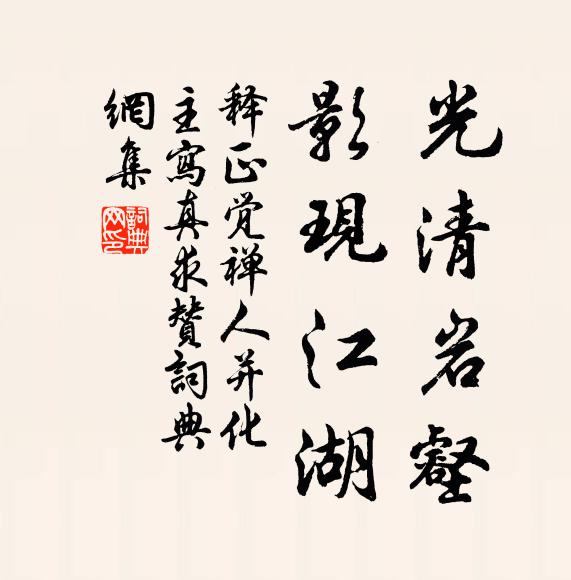 光清岩壑
影現江湖
释正觉禅人并化
主寫真求贊詞典
網集
詞典網印